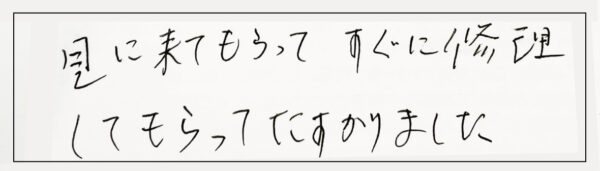 見に来てもらって すぐに修理
してもらってたすかりました